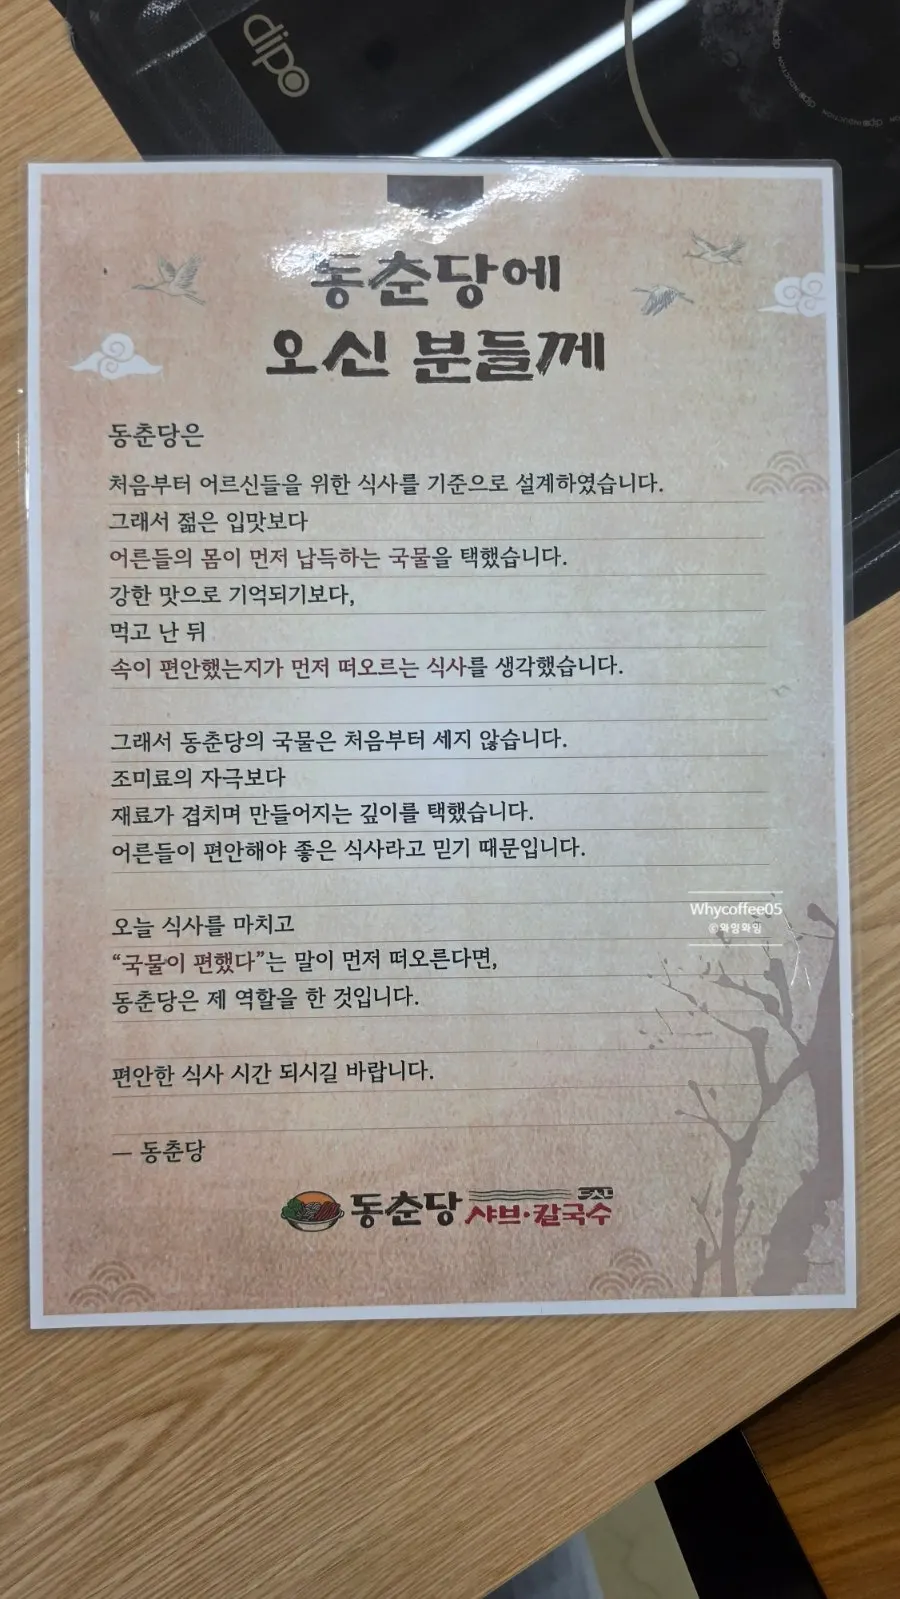 dipo
동춘당에
오신 분들께
동춘당은
처음부터 어르신들을 위한 식사를 기준으로 설계하였습니다.
그래서 젊은 입맛보다
어른들의 몸이 먼저 납득하는 국물을 택했습니다.
강한 맛으로 기억되기보다,
먹고 난 뒤
속이 편안했는지가 먼저 떠오르는 식사를 생각했습니다.
그래서 동춘당의 국물은 처음부터 세지 않습니다.
조미료의 자극보다
재료가 겹치며 만들어지는 깊이를 택했습니다.
어른들이 편안해야 좋은 식사라고 믿기 때문입니다.
Whycoffee05
©와임와임
오늘 식사를 마치고
“국물이 편했다”는 말이 먼저 떠오른다면,
동춘당은 제 역할을 한 것입니다.
편안한 식사 시간 되시길 바랍니다.
— 동춘당
동춘당 샤브·칼국수